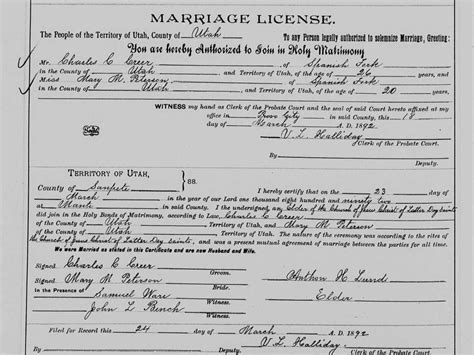 MARRIAGE LICENSE.
The People of the Territory of Utah, County of Utah To any Person legally authorized to solemnize Marriage, Greeting:
You are hereby Authorized to Join in Holy Matrimony
Mr. Charles C Creer of Spanish Fork
in the County of Utah and Territory of Utah, of the age of 26 years, and
Miss Mary M. Peterson of Spanish Fork
in the County of Utah and Territory of Utah, of the age of 20 years,
WITNESS my hand as Clerk of the Probate Court and the seal of said Court hereto affixed at my
office in Provo City in said County, this 18
day of March A. D. 1892
V. L. Halliday
Clerk of the Probate Court.
By
Deputy.
TERRITORY OF UTAH,
County of Sanpete ss.
I hereby certify that on the 23 day of
March in the year of our Lord one thousand eight hundred and ninety two
at Manti in said County, I the undersigned, an Elder of the Church of Jesus Christ of Latter Day Saints
did join in the Holy Bonds of Matrimony, according to Law, Charles C. Creer
of the County of Utah Territory of Utah, and Mary M. Peterson
of the County of Utah Territory of Utah. The nature of the ceremony was according to the rites of
the Church of Jesus Christ of Latter Day Saints, and was a present mutual agreement of marriage between the parties for all time.
We were Married as stated in this Certificate and are now Husband and Wife.
Signed Charles C Creer
Groom.
Signed Mary M. Peterson
Bride.
In the Presence of
Samuel Ware
John L Bench
Anthon H Lund
Elder
Filed for Record this 24 day of March A. D. 1892
V. L. Halliday